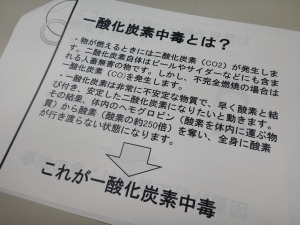 一酸化炭素中毒とは？
・物が燃えるときには二酸化炭素（CO2）が発生しま
す。二酸化炭素自体はビールやサイダーなどにも含ま
れる人畜無害の物です。しかし、不完全燃焼の場合は
一酸化炭素（CO）を発生します。
・一酸化炭素は非常に不安定な物質で、早く酸素と結
び付き、安定した二酸化炭素になりたいと動きます。
その結果、体内のヘモグロビン（酸素を体内に運ぶ物
質）から酸素（酸素の約250倍）を奪い、全身に酸素
が行き渡らない状態になります。
これが一酸化炭素中毒